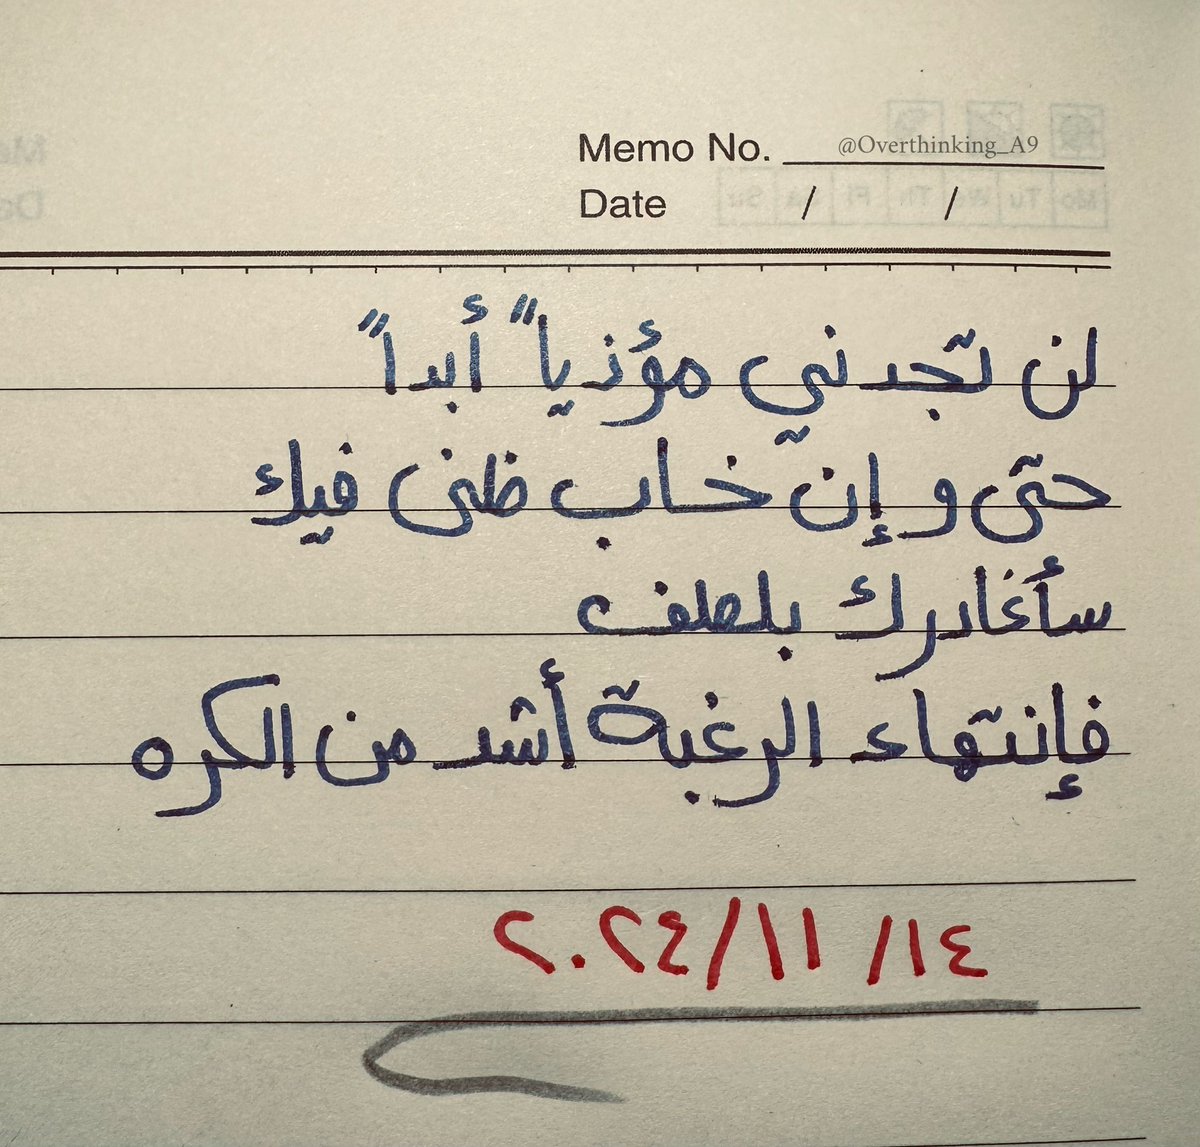 Memo No. @Overthinking_A9
Date / /
لن تجدني مؤذياً أبداً
حتى وإن خاب ظني فيك
سأغادرك بلطف
فإنتهاء الرغبة أشد من الكره
١٤/ ١١/ ٢٠٢٤